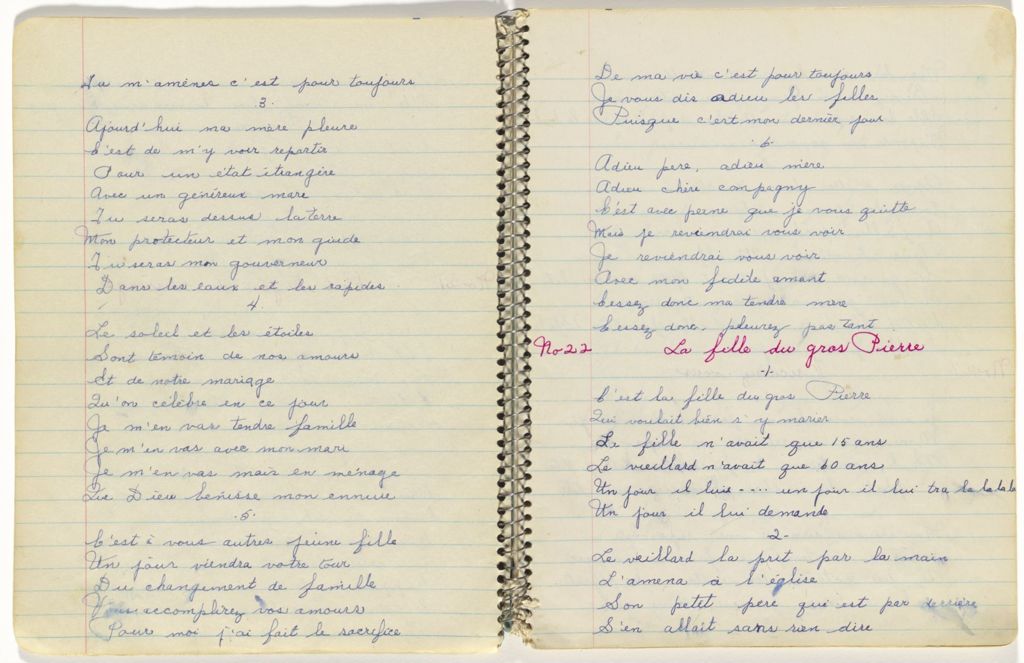 Tu m'amènes c'est pour toujours
3.
Ajourd'hui ma mère pleure
C'est de m'y voir repartir
Pour un état étrangère
Avec un généreux mare
Tu seras dessus la terre
Mon protecteur et mon guide
Tu seras mon gouverneur
Dans les eaux et les rapides.
4.
Le soleil et les étoiles
Sont témoin de nos amours
Et de notre mariage
Qu'on célèbre en ce jour
Je m'en vas tendre famille
Je m'en vas avec mon mari
Je m'en vas mais en ménage
Que Dieu bénisse mon ennuie
.5.
C'est à vous autres jeune fille
Un jour viendra votre tour
Du changement de famille
Vous accomplirez vos amours
Pour moi j'ai fait le sacrifice
De ma vie c'est pour toujours
Je vous dis adieu les filles
Puisque c'est mon dernier jour
.6.
Adieu père, adieu mère
Adieu chère compagny
C'est avec peine que je vous quitte
Mais je reviendrai vous voir
Je reviendrai vous voir
Avec mon fidèle amant
Cessez donc ma tendre mère
Cessez donc, pleurez pas tant.
No 22 La fille du gros Pierre
-1-
C'est la fille du gros Pierre
Qui voulait bien s'y marier
La fille n'avait que 15 ans
Le vieillard n'avait que 60 ans
Un jour il lui .... un jour il lui tra la la la la
Un jour il lui demande
2-
Le veillard la prit par la main
L'amena à l'église
Son petit père qui est par derrière
S'en allait sans rien dire